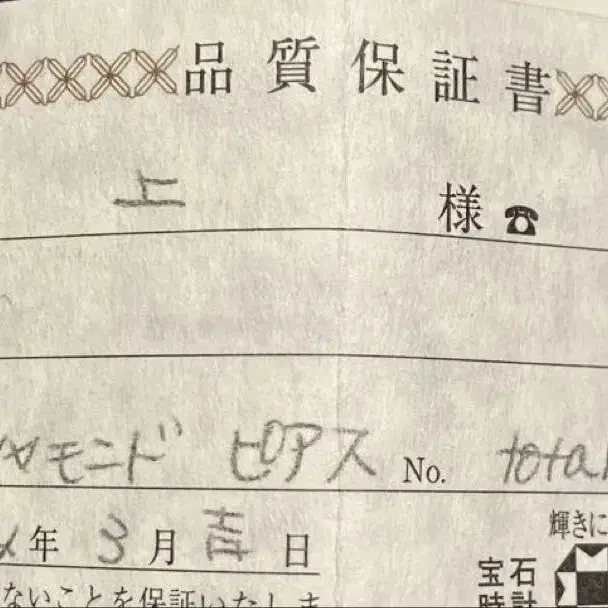 品質保証書
上 様 ☎
ヤモニド ピアス No. total
年 3 月 吉 日
輝きに
宝石
時計
ないことを保証いたしま